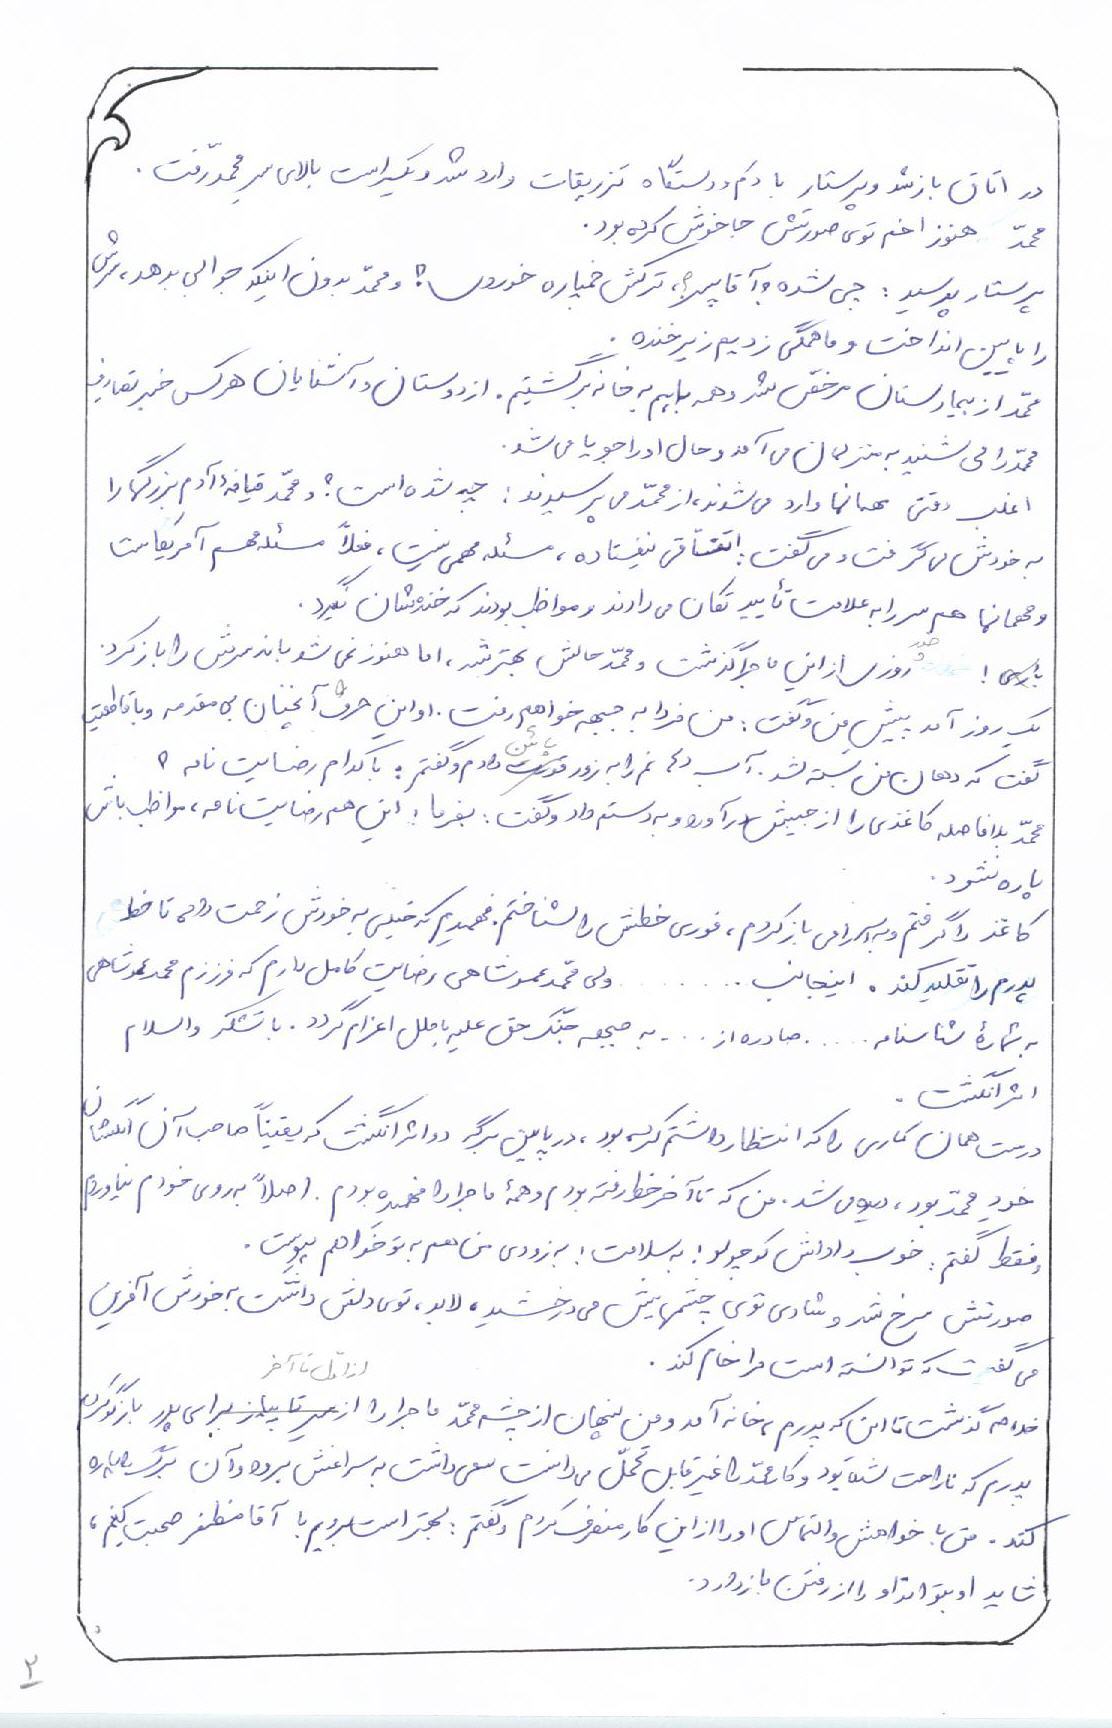 در اتاق باز شد و پرستار با دم و دستگاه تزریقات وارد شد و یکراست بالای سر محمّد رفت.
محمّد هنوز اخم توی صورتش جا خوش کرده بود.
پرستار پرسید: چی شده آقا پسر؟، ترکش خمپاره خوردی؟ و محمّد بدون اینکه جوابی بدهد، سرش
را پایین انداخت و ما همگی زدیم زیر خنده.
محمّد از بیمارستان مرخص شد و همه باهم به خانه برگشتیم. از دوستان و آشنایان هرکس خبر تصادف
محمّد را می شنید به منزلمان می آمد و حال او را جویا می شد.
اغلب وقتی مهمانها وارد می شوند، از محمّد می پرسیدند: چه شده است؟ و محمّد قیافهٔ آدم بزرگها را
به خودش می گرفت و می گفت: اتفاقی نیفتاده، مسئله مهمی نیست، فعلاً مسئله مهم آمریکاست
و مهمانها هم سر را به علامت تأیید تکان می دادند و مواظب بودند که خنده شان نگیرد.
چند روزی از این ماجرا گذشت و محمّد حالش بهتر شد، اما هنوز نمی شد باند سرش را باز کرد.
یک روز آمد پیش من و گفت: من فردا به جبهه خواهم رفت. او این حرف را آنچنان بی مقدمه و با قاطعیت
گفت که دهان من بسته شد. آب دهانم را به زور قورت پائین دادم و گفتم: با کدام رضایت نامه؟
محمّد بلافاصله کاغذی را از جیبش درآورد و به دستم داد و گفت: بفرما! این هم رضایت نامه، مواظب باش
پاره نشود.
کاغذ را گرفتم و به آرامی باز کردم، فوری خطش را شناختم. فهمیدم که خیلی به خودش زحمت داده تا خط
پدرم را تقلید کند. اینجانب ......... ولی محمّد عموشاهی رضایت کامل دارم که فرزندم محمد عموشاهی
به شمارهٔ شناسنامه ..... صادره از .... به جبهه جنگ حق علیه باطل اعزام گردد. با تشکر والسلام
اثر انگشت.
درست همان کاری را که انتظار داشتم کرده بود، در پایین برگه دو اثر انگشت که یقیناً صاحب آن انگشتان
خودِ محمّد بود، دیده می شد. من که تا آخر خط رفته بودم و همهٔ ماجرا را فهمیده بودم. اصلاً به روی خودم نیاوردم
و فقط گفتم: خوب داداش کوچولو! به سلامت! به زودی من هم به تو خواهم پیوست.
صورتش سرخ شد و شادی توی چشمهایش می درخشید، لابد، توی دلش داشت به خودش آفرین
می گفت که توانسته است مرا خام کند.
از اوّل تا آخر
خلاصه گذشت تا این که پدرم، خانه آمد و من پنهان از چشم محمّد ماجرا را از سیر تا پیاز برای پدر بازگو کردم
پدرم که ناراحت شده بود و کار محمّد را غیر قابل تحمّل می دانست سعی داشت به سراغش برود و آن برگه را پاره
کند. من با خواهش و التماس او را از این کار منصرف کردم و گفتم: بهتر است برویم با آقا مظفر صحبت کنیم،
شاید او بتواند او را از رفتن باز دارد.
۲